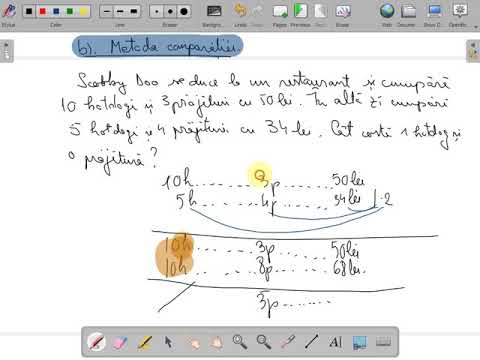 Pen Board Highlighter Eraser Backgro... Undo Redo Pages Previous Next Erase
b). Metoda comparației
Scooby Doo se duce la un restaurant și cumpără
10 hotdogi și 3 prăjituri cu 50 lei. În altă zi cumpără
5 hotdogi și 4 prăjituri cu 34 lei. Cât costă 1 hotdog și
o prăjitură?
10h......... 3p ........ 50lei
5h ......... 4p ....... 34lei | ·2
10h......... 3p ........ 50lei
10h ....... 8p ....... 68lei.
/ 3p ........